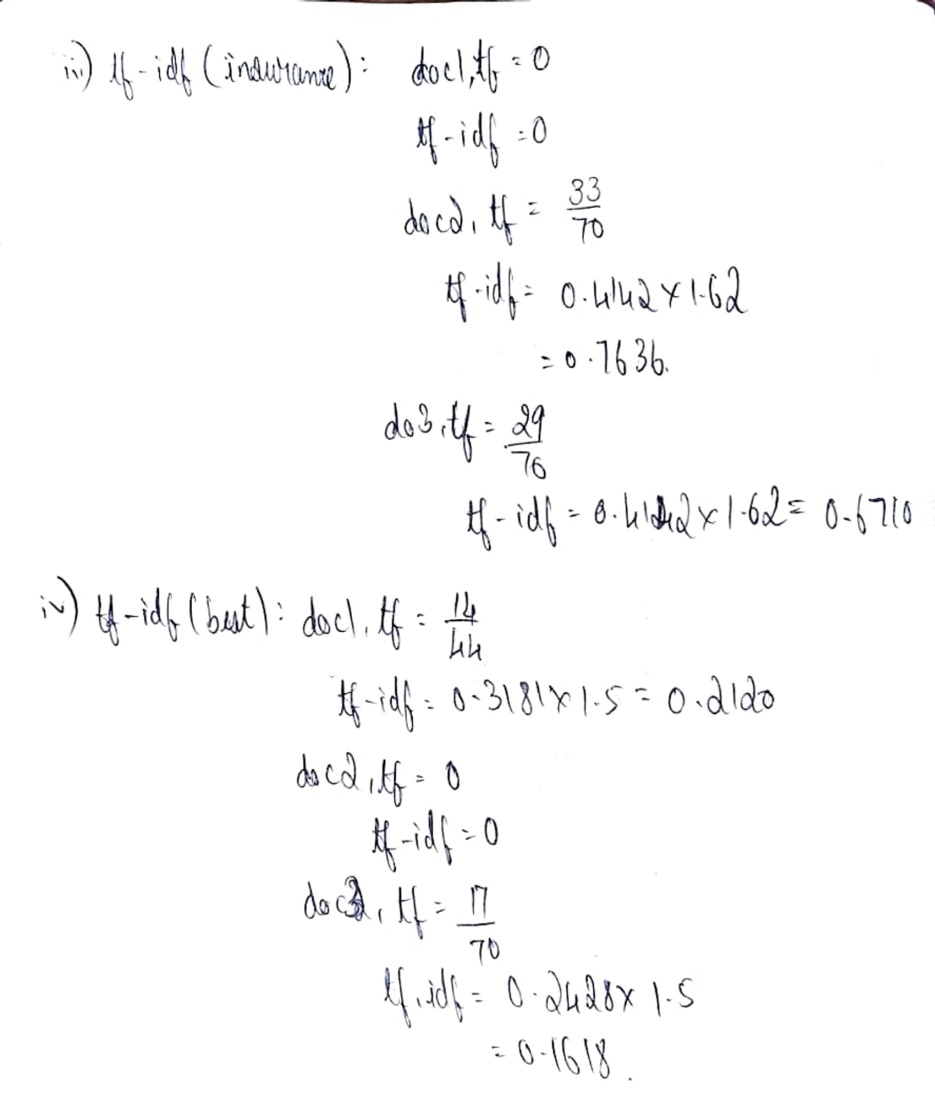 iii) tf-idf (insurance): doc1, tf = 0
tf-idf = 0
doc2, tf = 33/70
tf-idf = 0.4142 x 1.62
= 0.7636.
do3, tf = 29/70
tf-idf = 0.4142 x 1.62 = 0.6710
iv) tf-idf (best): doc1, tf = 14/44
tf-idf = 0.3181 x 1.5 = 0.2120
doc2, tf = 0
tf-idf = 0
doc3, tf = 17/70
tf.idf = 0.2428 x 1.5
= 0.1618.